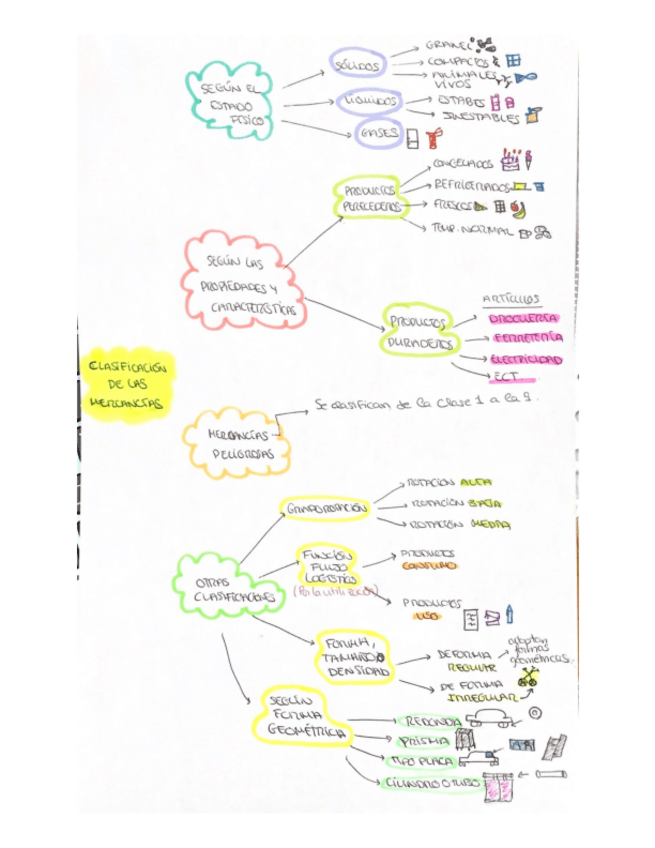 CLASIFICACIÓN
DE LAS
MERCANCÍAS
SEGÚN EL
ESTADO
FÍSICO
SÓLIDOS
GRANEL
COMPACTOS
ANIMALES
VIVOS
LÍQUIDOS
ESTABES
INESTABLES
GASES
SEGÚN LAS
PROPIEDADES Y
CARACTERÍSTICAS
PRODUCTOS
PERECEDEROS
CONGELADOS
REFRIGERADOS
FRESCOS
TEMP. NORMAL
PRODUCTOS
DURADEROS
ARTÍCULOS
DROGUERÍA
FERRETERÍA
ELECTRICIDAD
ECT.
MERCANCÍAS
PELIGROSAS
Se clasifican de la clase 1 a la 9.
OTRAS
CLASIFICACIONES
ROTACIÓN ALTA
ROTACIÓN BAJA
ROTACIÓN MEDIA
FUNCIÓN
FLUJO
LOGÍSTICO
(Por la utilización)
PRODUCTOS
CONSUMO
PRODUCTOS
USO
FORMA,
TAMAÑO
DENSIDAD
DE FORMA
REGULAR
adoptan
formas
geométricas.
DE FORMA
IRREGULAR
SEGÚN
FORMA
GEOMÉTRICA
REDONDA
PRISMA
TIPO PLACA
CILINDRO O TUBO